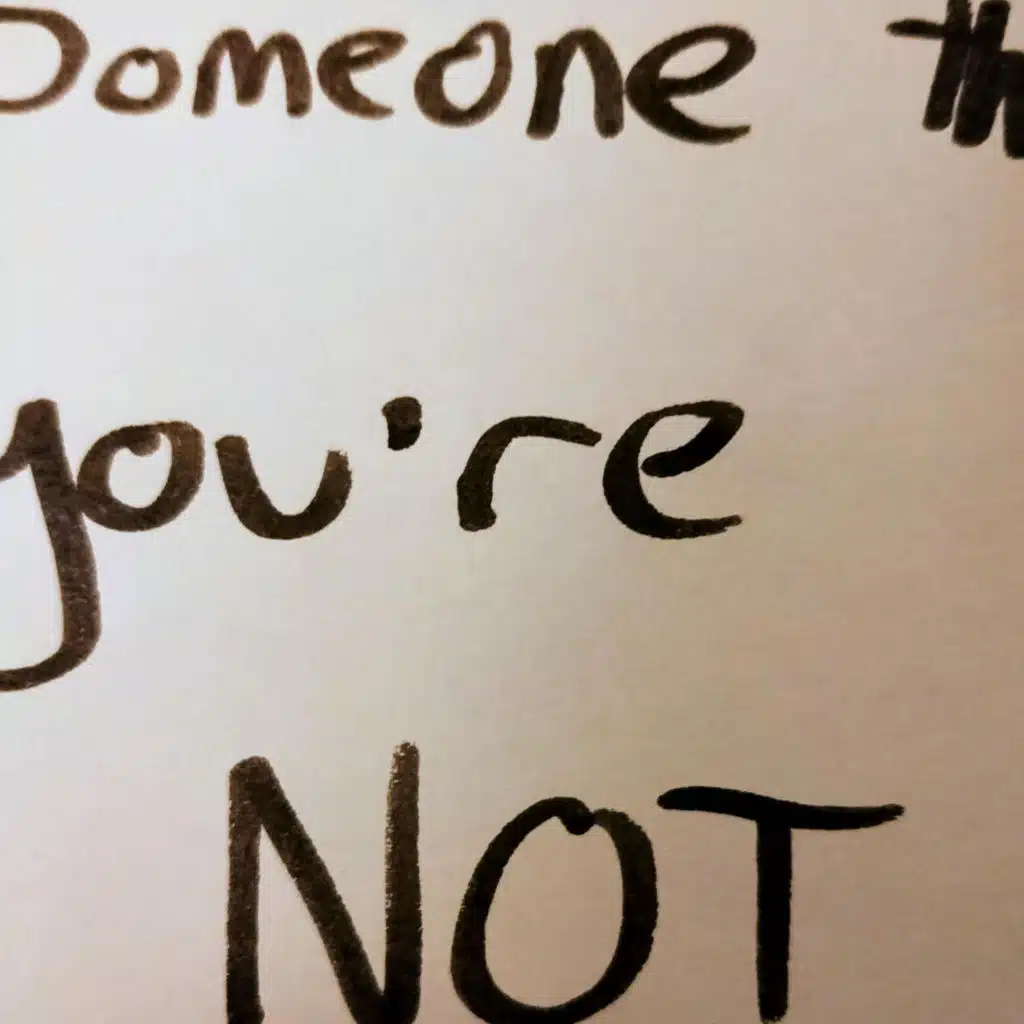 Someone th
you're
NOT